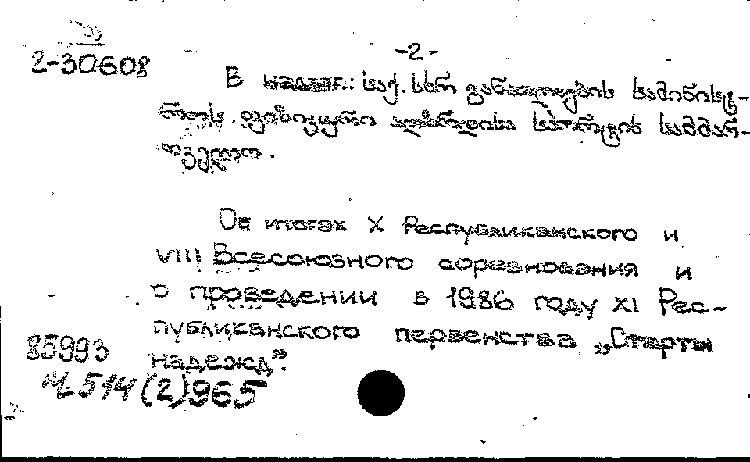 -2-
2-30608
В надзаг.: საქ. სსრ განათლების სამინისტ-
როს. ფიზიკური აღზრდისა სპორტის სამმარ-
თველო.
Об итогах X Республиканского и
VIII Всесоюзного соревнования и
о проведении в 1986 году XI Рес-
публиканского первенства „Старты
надежд".
85993
514(2)965